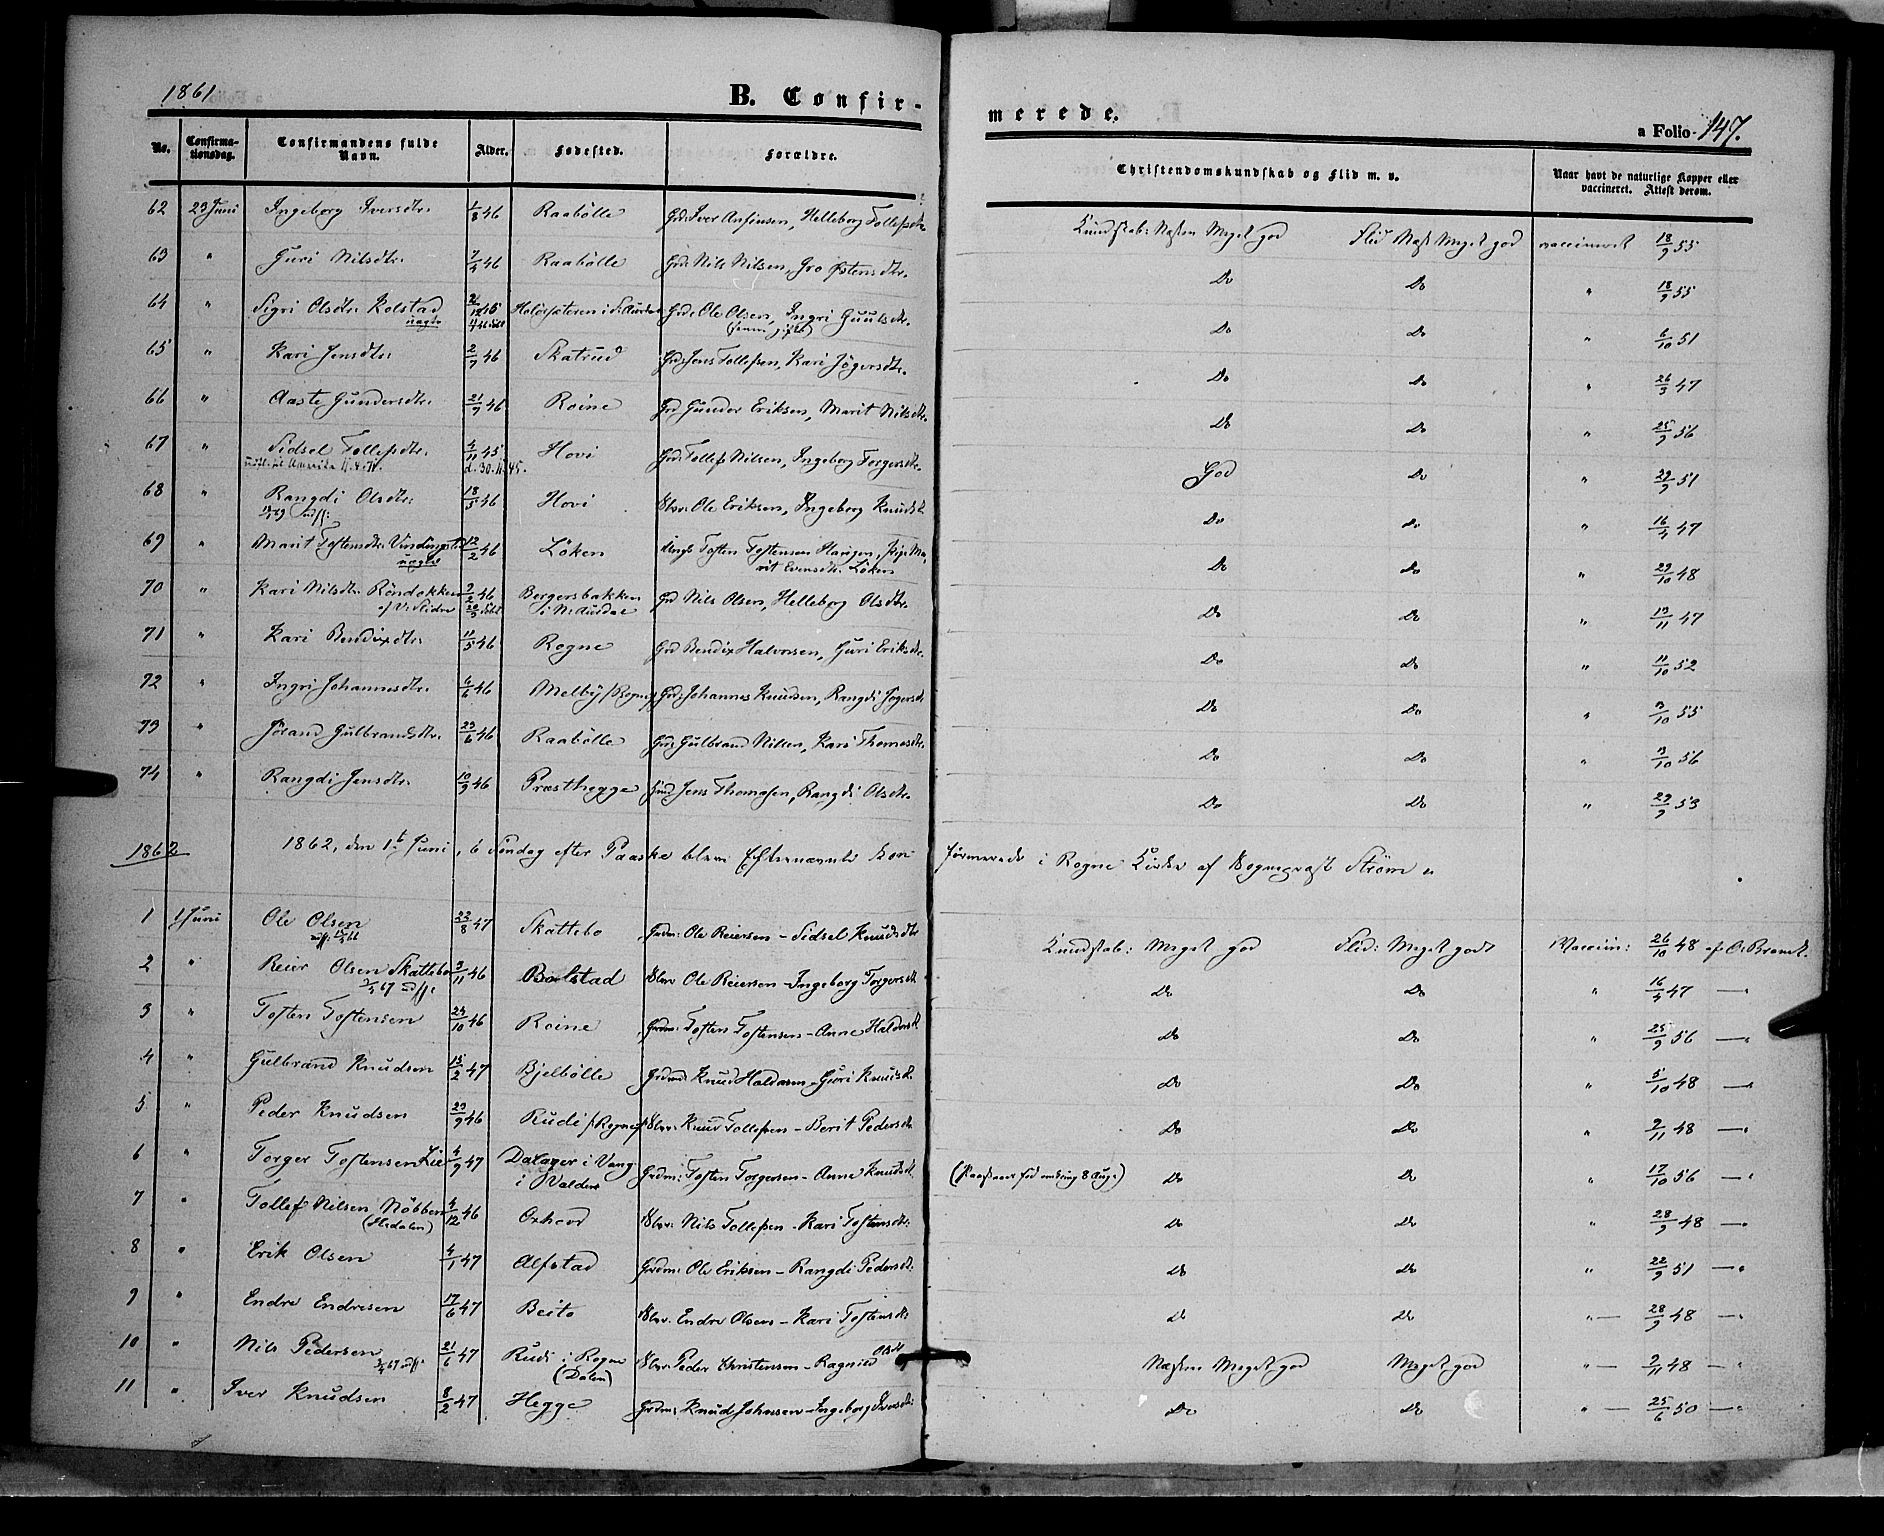 1861
B. Confir-
merede.
a Folio 147.
No.
Confirma-
tionsdag.
Confirmandens fulde
Navn.
Alder.
Fødested.
Forældre.
Christendomskundskab og Flid m. v.
Naar havt de naturlige Kopper eller
vaccineret. Attest derom.
62 23 Juni Ingeborg Iversdtr. 1/8 46 Raabølle Grd: Iver Anfinsen, Helleborg Tollefsdtr. Kundskab: Næsten Meget god Flid Næst Meget god vaccineret 18/9 55
63 " Guri Nilsdtr. 7/4 46 Raabølle Grd: Nils Nilsen, Gro Østensdtr. Do Do " 18/9 55
64 " Sigri Olsdtr. Kolstad 21/12 45 Grd: Ole Olsen, Ingri Guulsdtr. Do Do " 6/10 51
65 " Kari Jensdtr. 2/7 46 Skatrud Grd: Jens Tollefsen, Kari Jögersdtr. Do Do " 26/9 47
66 " Aaste Gundersdtr. 21/9 46 Roine Grd Gunder Eriksen, Marit Nilsdtr. Do Do " 25/9 56
67 " Sidsel Tollefsdtr. 4/11 45 Hovi Grd: Tollef Nilsen, Ingeborg Torgersdtr. God Do " 29/9 51
d. 30.11.45.
68 " Rangdi Olsdtr. 18/5 46 Hovi Ole Eriksen, Ingeborg Knudsd. Do Do " 16/4 47
69 " Marit Tostensdtr. 12/2 46 Löken Tosten Tostensen
Marit Evensdtr. Löken Do Do " 29/10 48
70 " Kari Nilsdtr. Röndokken 2/2 46 Bergersbakken Grd Nils Olsen, Helleborg Olsdtr. Do Do " 19/11 47
af V: Slidre i N: Aurdal
71 " Kari Bendixdtr. 11/5 46 Rogne Grd Bendix Halvorsen, Guri Eriksdtr. Do Do " 11/10 52
72 " Ingri Johannesdtr. 6/6 46 Melby /Rogne/ Grd: Johannes Knudsen, Rangdi Jögersdtr. Do Do " 3/10 55
73 " Jörand Gulbrandsdtr. 23/6 46 Raabölle Grd: Gulbrand Nilsen, Kari Thomesdtr. Do Do " 3/10 56
74 " Rangdi Jensdtr. 10/9 46 Præsthegge Jens Thomesen, Rangdi Olsdtr. Do Do " 29/9 53
1862 1862, den 1t Juni, 6 Söndag efter Paaske bleve Efternævnte Con-
firmerede i Rogne Kirke af Sogneprest Strøm
1 1 Juni Ole Olsen 22/8 47 Skattebo Grdm: Ole Reiersen - Sidsel Knudsdtr Kundskab: Meget god Flid: Meget godt Vaccin: 26/10 48 af O. Brandt.
2 " Reier Olsen Skattebo 3/11 46 Bolstad Ole Reiersen - Ingeborg Torgersd. Do Do " 16/4 47 —"
3 " Tosten Tostensen 24/10 46 Roine Grdm: Tosten Tostensen - Anne Haldorsd. Do Do " 25/9 56 —"
4 " Gulbrand Knudsen 15/2 47 Bjelbölle Grdm: Knud Haldorsen - Guri Knudsd. Do Do " 5/10 48 —"
5 " Peder Knudsen 29/9 46 Rudi /Rogne/ Knud Tollefsen - Berit Pedersd. Do Do " 2/11 48 —"
6 " Torger Tostensen Lie 4/9 47 Dalager i Vang Grdm: Tosten Torgersen - Anne Knudsd. Do Do " 17/10 56 —"
i Valders
7 " Tollef Nilsen 4/12 46 Oxhovd Nils Tollefsen - Kari Tostensdtr: Do Do " 28/9 48 —"
(Hedalen)
8 " Erik Olsen 4/1 47 Alfstad Grdm: Ole Eriksen - Rangdi Pedersd. Do Do " 22/9 51 —"
9 " Endre Endresen 17/6 47 Beito Endre Olsen - Kari Tostensd: Do Do " — 28/9 48 —"
10 " Nils Pedersen 21/6 47 Rudi i Rogne Peder Christensen - Ragnild Olsd Næsten Meget god Meget god " — 2/11 48 —"
(Dalen)
11 " Iver Knudsen 8/2 47 Hegge Grdm: Knud Johnsen - Ingeborg Iversd: Do Do " — 25/6 50 —"